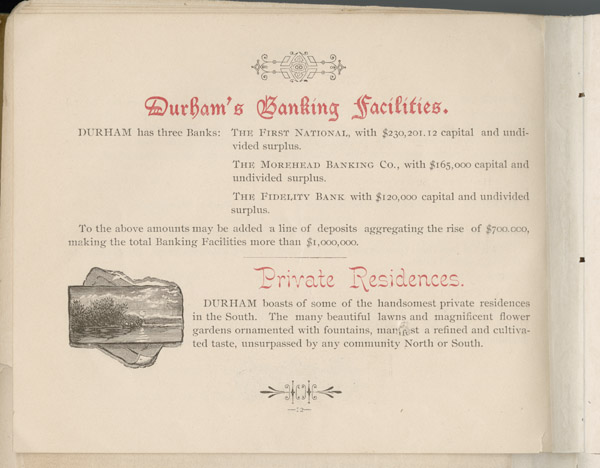 Durham's Banking Facilities.
DURHAM has three Banks: THE FIRST NATIONAL, with $230,201.12 capital and undi-
vided surplus.
THE MOREHEAD BANKING CO., with $165,000 capital and
undivided surplus.
THE FIDELITY BANK with $120,000 capital and undivided
surplus.
To the above amounts may be added a line of deposits aggregating the rise of $700.000,
making the total Banking Facilities more than $1,000,000.
Private Residences.
DURHAM boasts of some of the handsomest private residences
in the South. The many beautiful lawns and magnificent flower
gardens ornamented with fountains, manifest a refined and cultiva-
ted taste, unsurpassed by any community North or South.